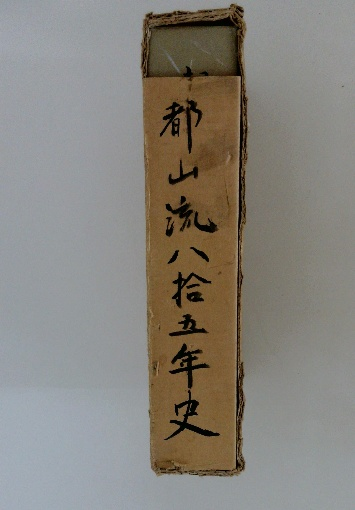 都山流八拾五年史